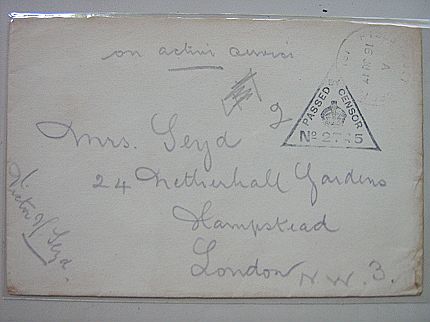 on active service
PASSED BY CENSOR
No 2745
Mrs. Seyd
24 Netherhall Gardens
Hampstead
London N.W. 3.
Victor Seyd.